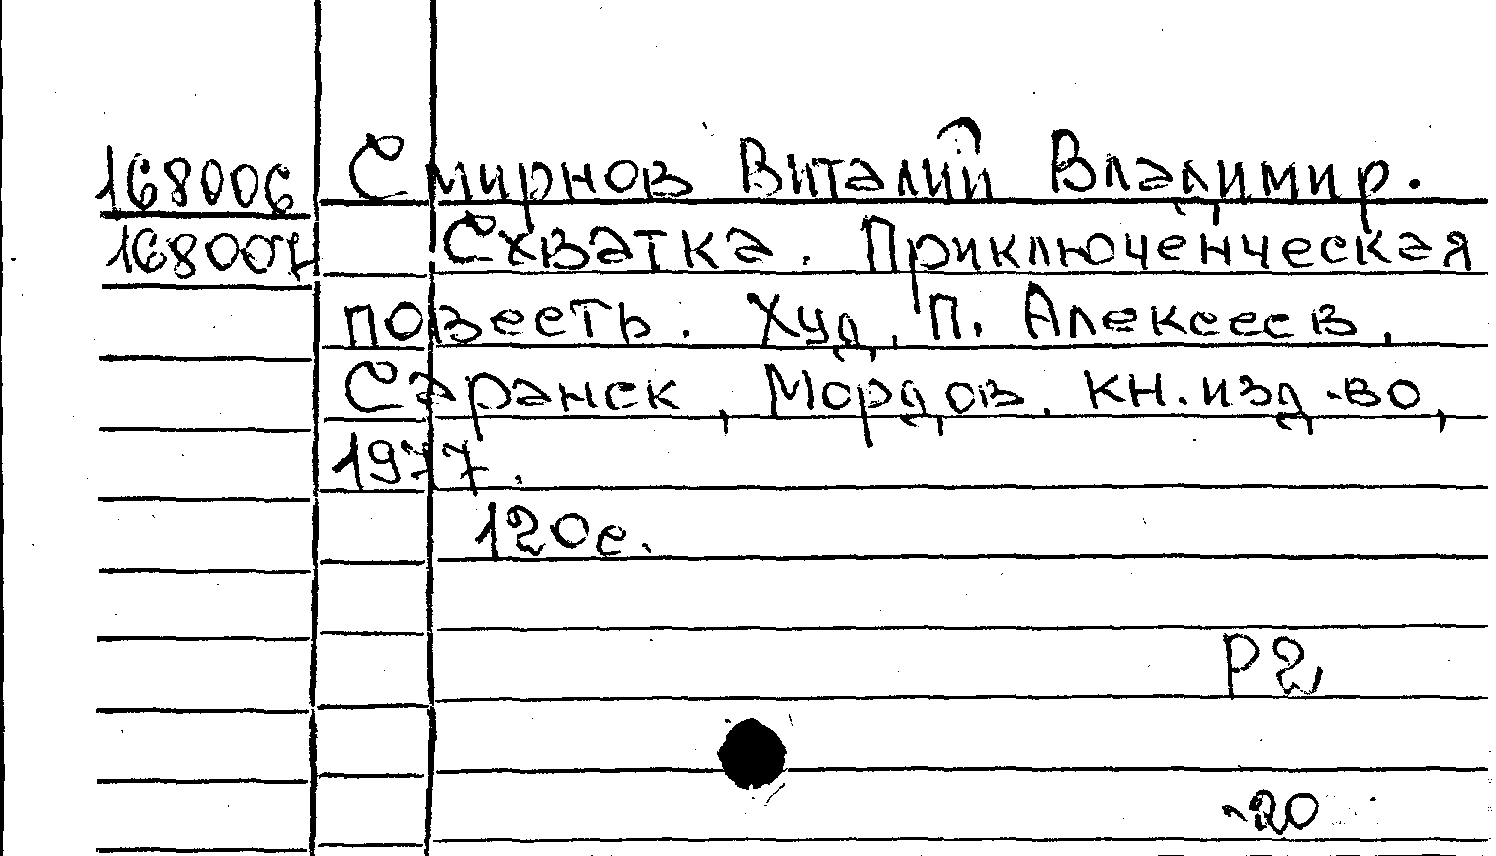 168006 Смирнов Виталий Владимир.
168007 Схватка. Приключенческая
повесть. Худ. П. Алексеев.
Саранск, Мордов. кн. изд-во,
1977.
120с.
Р2
-20